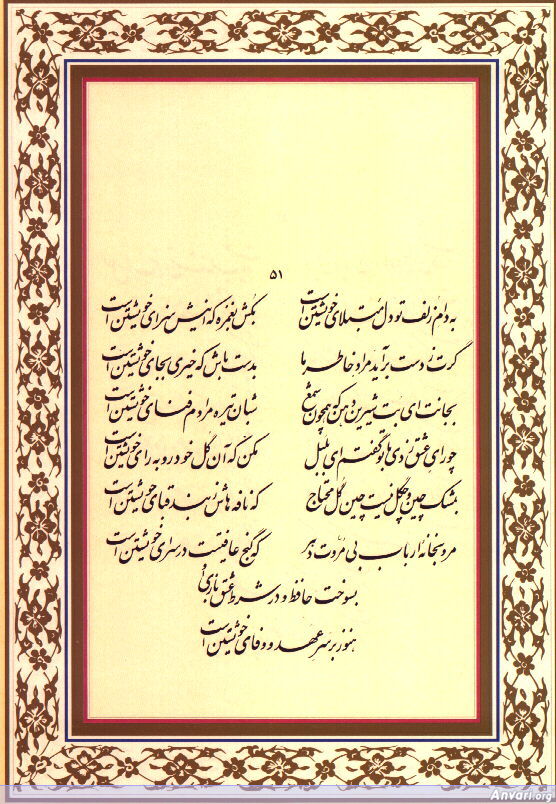 ۵۱
به دام زلف تو دل مبتلای خویشتن است بکش بغمزه که اینش سزای خویشتن است
گرت ز دست برآید مراد خاطر ما بدست باش که خیری بجای خویشتن است
بجانت ای بت شیرین دهن که همچون شمع شبان تیره مرادم فنای خویشتن است
چو رای عشق زدی با تو گفتم ای بلبل مکن که آن گل خودرو به رای خویشتن است
بمشک چین و چگل نیست چین گل محتاج که نافه هاش ز بند قبای خویشتن است
مرو بخانه ارباب بی مروت دهر که گنج عافیتت در سرای خویشتن است
بسوخت حافظ و در شرط عشق بازی او
هنوز بر سر عهد و وفای خویشتن است
Anvari.org